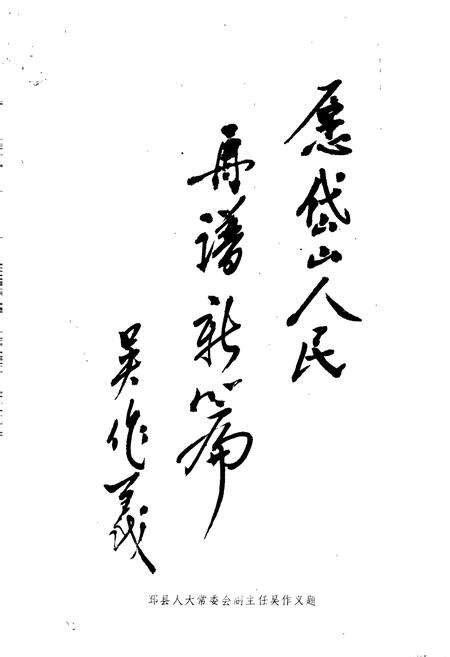 愿岱山人民
再谱新篇
吴作義
邳县人大常委会副主任吴作义题